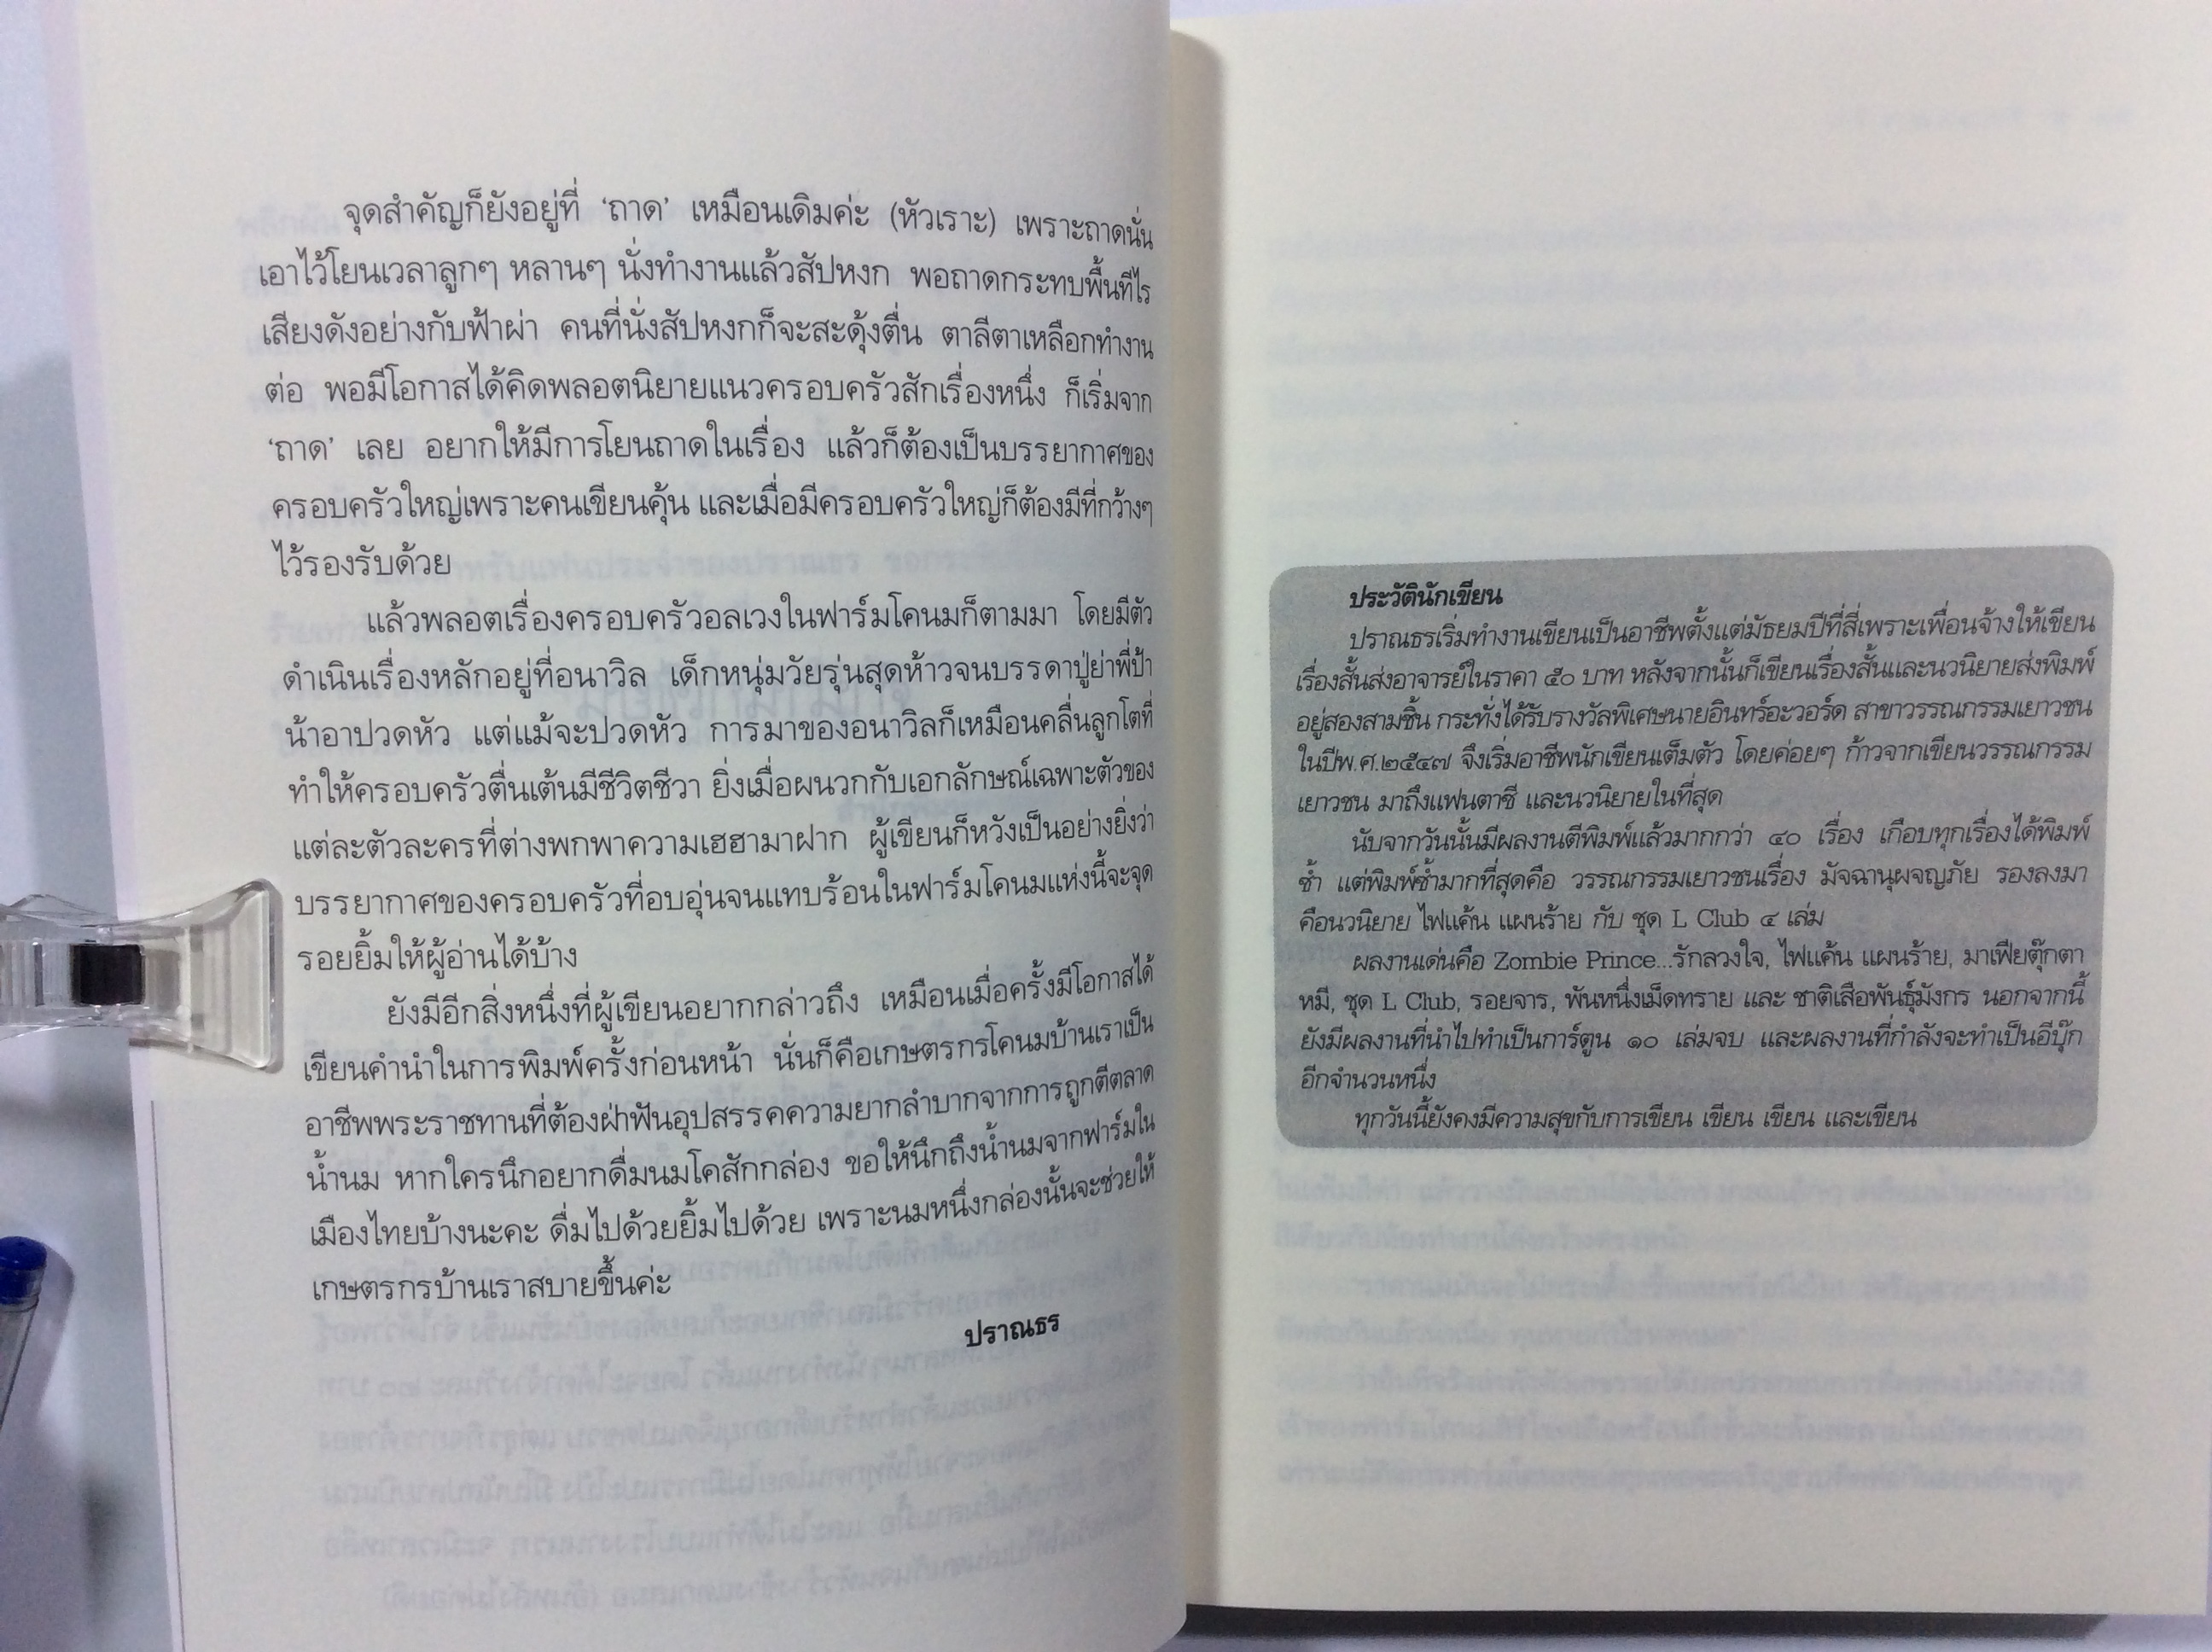 จุดสำคัญก็ยังอยู่ที่ ‘ถาด’ เหมือนเดิมค่ะ (หัวเราะ) เพราะถาดนั่น
เอาไว้โยนเวลาลูกๆ หลานๆ นั่งทำงานแล้วสัปหงก พอถาดกระทบพื้นทีไร
เสียงดังอย่างกับฟ้าผ่า คนที่นั่งสัปหงกก็จะสะดุ้งตื่น ตาลีตาเหลือกทำงาน
ต่อ พอมีโอกาสได้คิดพลอตนิยายแนวครอบครัวสักเรื่องหนึ่ง ก็เริ่มจาก
‘ถาด’ เลย อยากให้มีการโยนถาดในเรื่อง แล้วก็ต้องเป็นบรรยากาศของ
ครอบครัวใหญ่เพราะคนเขียนคุ้น และเมื่อมีครอบครัวใหญ่ก็ต้องมีที่กว้างๆ
ไว้รองรับด้วย
แล้วพลอตเรื่องครอบครัวอลเวงในฟาร์มโคนมก็ตามมา โดยมีตัว
ดำเนินเรื่องหลักอยู่ที่อนาวิล เด็กหนุ่มวัยรุ่นสุดห้าวจนบรรดาปู่ย่าพี่ป้า
น้าอาปวดหัว แต่แม้จะปวดหัว การมาของอนาวิลก็เหมือนคลื่นลูกโตที่
ทำให้ครอบครัวตื่นเต้นมีชีวิตชีวา ยิ่งเมื่อผนวกกับเอกลักษณ์เฉพาะตัวของ
แต่ละตัวละครที่ต่างพกพาความเฮฮามาฝาก ผู้เขียนก็หวังเป็นอย่างยิ่งว่า
บรรยากาศของครอบครัวที่อบอุ่นจนแทบร้อนในฟาร์มโคนมแห่งนี้จะจุด
รอยยิ้มให้ผู้อ่านได้บ้าง
ยังมีอีกสิ่งหนึ่งที่ผู้เขียนอยากกล่าวถึง เหมือนเมื่อครั้งมีโอกาสได้
เขียนคำนำในการพิมพ์ครั้งก่อนหน้า นั่นก็คือเกษตรกรโคนมบ้านเราเป็น
อาชีพพระราชทานที่ต้องฝ่าฟันอุปสรรคความยากลำบากจากการถูกตีตลาด
น้ำนม หากใครนึกอยากดื่มนมโคสักกล่อง ขอให้นึกถึงน้ำนมจากฟาร์มใน
เมืองไทยบ้างนะคะ ดื่มไปด้วยยิ้มไปด้วย เพราะนมหนึ่งกล่องนั้นจะช่วยให้
เกษตรกรบ้านเราสบายขึ้นค่ะ
ปราณธร
ประวัตินักเขียน
ปราณธรเริ่มทำงานเขียนเป็นอาชีพตั้งแต่มัธยมปีที่สี่เพราะเพื่อนจ้างให้เขียน
เรื่องสั้นส่งอาจารย์ในราคา ๕๐ บาท หลังจากนั้นก็เขียนเรื่องสั้นและนวนิยายส่งพิมพ์
อยู่สองสามชิ้น กระทั่งได้รับรางวัลพิเศษนายอินทร์อะวอร์ด สาขาวรรณกรรมเยาวชน
ในปีพ.ศ.๒๕๔๗ จึงเริ่มอาชีพนักเขียนเต็มตัว โดยค่อยๆ ก้าวจากเขียนวรรณกรรม
เยาวชน มาถึงแฟนตาซี และนวนิยายในที่สุด
นับจากวันนั้นมีผลงานตีพิมพ์แล้วมากกว่า ๔๐ เรื่อง เกือบทุกเรื่องได้พิมพ์
ซ้ำ แต่พิมพ์ซ้ำมากที่สุดคือ วรรณกรรมเยาวชนเรื่อง มัจฉานุผจญภัย รองลงมา
คือนวนิยาย ไฟแค้น แผนร้าย กับ ชุด L Club ๔ เล่ม
ผลงานเด่นคือ Zombie Prince...รักลวงใจ, ไฟแค้น แผนร้าย, มาเฟียตุ๊กตา
หมี, ชุด L Club, รอยจาร, พันหนึ่งเม็ดทราย และ ชาติเสือพันธุ์มังกร นอกจากนี้
ยังมีผลงานที่นำไปทำเป็นการ์ตูน ๑๐ เล่มจบ และผลงานที่กำลังจะทำเป็นอีบุ๊ก
อีกจำนวนหนึ่ง
ทุกวันนี้ยังคงมีความสุขกับการเขียน เขียน เขียน และเขียน